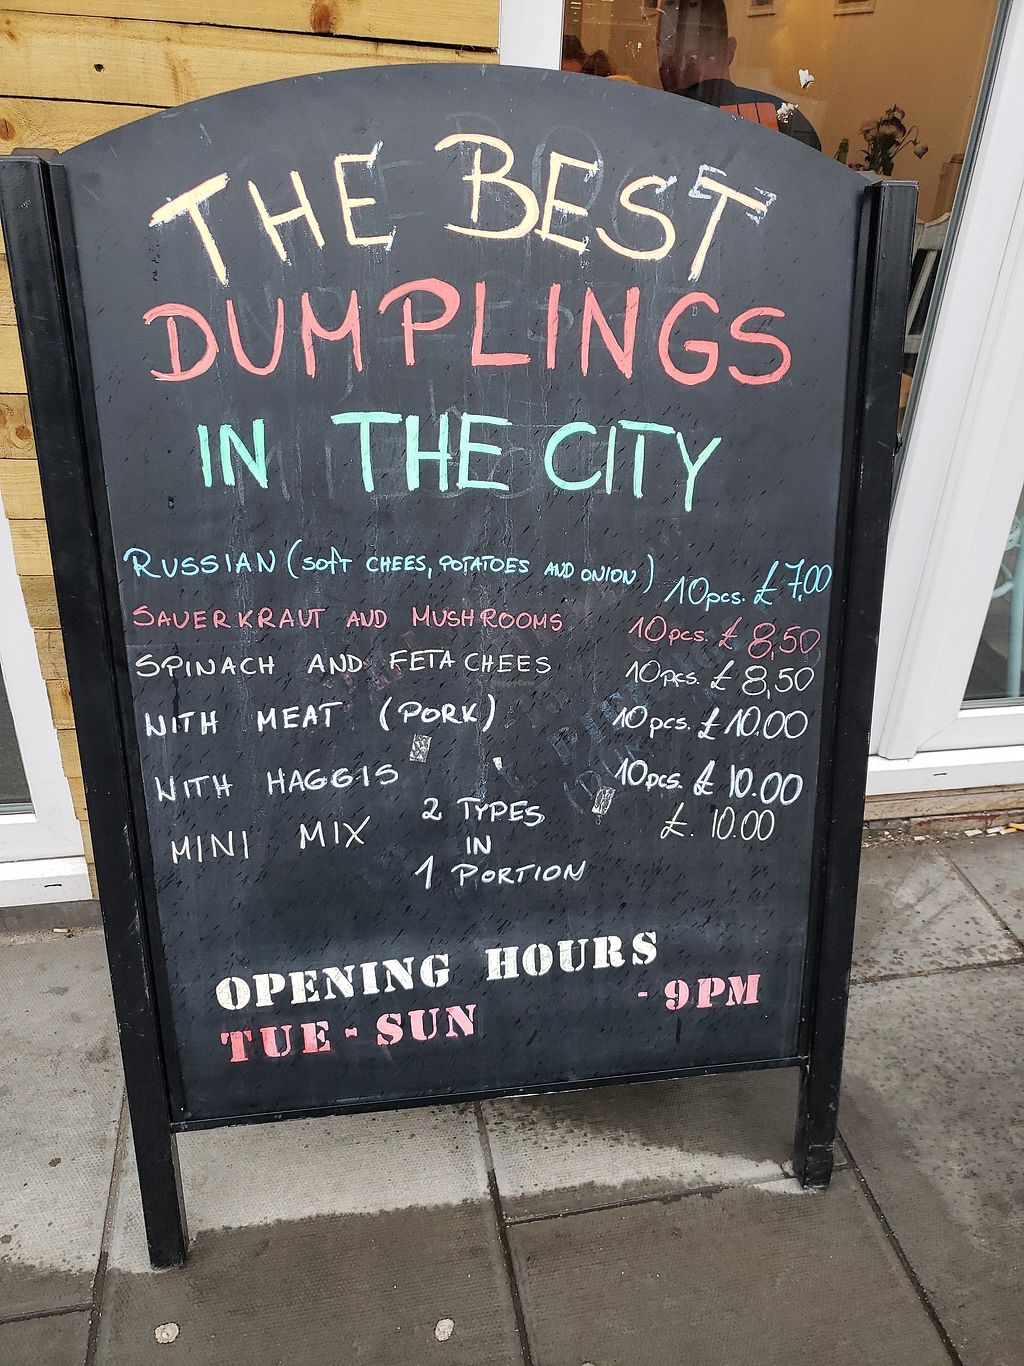 THE BEST
DUMPLINGS
IN THE CITY
RUSSIAN (soft CHEES, POTATOES AND ONION) 10pcs. £ 7,00
SAUERKRAUT AND MUSHROOMS 10pcs. £ 8,50
SPINACH AND FETA CHEES 10pcs. £ 8,50
WITH MEAT (PORK) 10pcs. £ 10.00
WITH HAGGIS 10pcs. £ 10.00
MINI MIX 2 TYPES £. 10.00
IN
1 PORTION
OPENING HOURS
TUE - SUN - 9PM